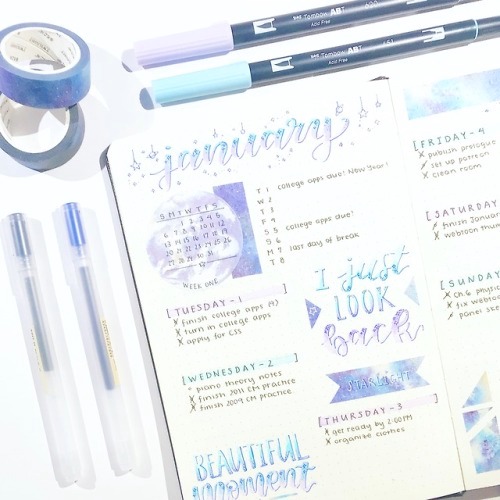 Tombow ABT
Acid Free
Tombow ABT
Acid Free
january
S M T W T F S
1 2 3 4 5
6 7 8 9 10 11 12
13 14 15 16 17 18 19
20 21 22 23 24 25 26
27 28 29 30 31
WEEK ONE
T 1 college apps due! New Year!
W 2
T 3
F 4
S 5 college apps due!
S 6
M 7 last day of break
T 8
[TUESDAY-1
x finish college apps (9)
x turn in college apps
x apply for CSS
[WEDNESDAY-2
piano theory notes
x finish 2011 CM practice
x finish 2009 CM practice
BEAUTIFUL
moment
I just
LOOK
back
STARLIGHT
[THURSDAY-3
x get ready by 2:00PM
x organize clothes
[FRIDAY-4
x publish prologue
set up patreon
x clean room
[SATURDAY
x finish Januar
x webtoon thum
[SUNDAY
x Ch.6 physic
x fix webtoon
x panel ske